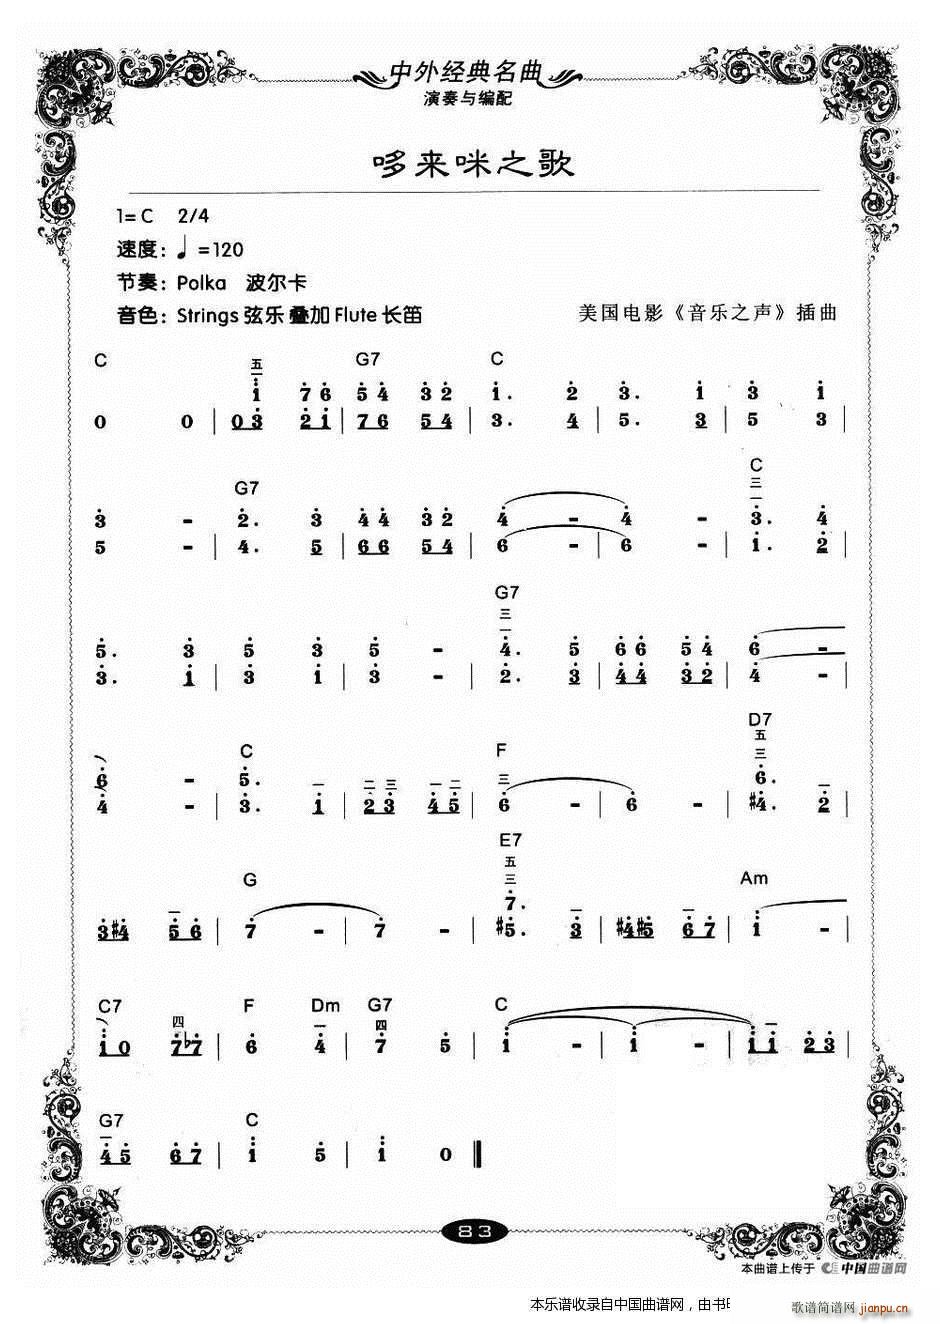 中外经典名曲
演奏与编配
哆来咪之歌
1=C 2/4
速度：♩=120
节奏：Polka 波尔卡
音色：Strings 弦乐 叠加 Flute 长笛
美国电影《音乐之声》插曲
C 五 二 G7 C
1̇ 7̇ 6̇ 5̇ 4̇ 3̇ 2̇ 1̇. 2̇ 3̇. 1̇ 3̇ 1̇
0 0 | 0 3̇ 2̇ 1̇ | 7 6 5 4 | 3. 4 | 5. 3 | 5 3 |
G7 C 三 一
3̇ - 2̇. 3̇ 4̇ 4̇ 3̇ 2̇ 4̇ - 4̇ - 3̇. 4̇
5 - | 4. 5 | 6 6 5 4 | 6 - | 6 - | 1̇. 2̇ |
G7 三 一
5̇. 3̇ 5̇ 3̇ 5̇ - 4̇. 5̇ 6̇ 6̇ 5̇ 4̇ 6̇ -
3̇. 1̇ | 3̇ 1̇ | 3̇ - | 2̇. 3̇ | 4̇ 4̇ 3̇ 2̇ | 4̇ - |
C 一 二 三 一 二 F 三 D7 五 三
6̇ - 5̇. 6̇.
4̇ - | 3̇. 1̇ | 2̇ 3̇ 4̇ 5̇ | 6̇ - | 6̇ - | #4̇. 2̇ |
一 G E7 五 三 一 一 Am
7̇.
3̇ #4̇ 5̇ 6̇ | 7̇ - | 7̇ - | #5̇. 3̇ | #4̇ #5̇ 6̇ 7̇ | 1̇ - |
C7 四 F Dm 一 G7 四 C 一
1̇ 0 7̇ b7̇ | 6̇ 4̇ | 7̇ 5̇ | 1̇ - | 1̇ - | 1̇ 1̇ 2̇ 3̇ |
G7 一 一 C
4̇ 5̇ 6̇ 7̇ | 1̇ 5̇ | 1̇ 0 ‖
83
本曲谱上传于 中国曲谱网
本乐谱收录自中国曲谱网，由书
歌谱简谱网 jianpu.cn